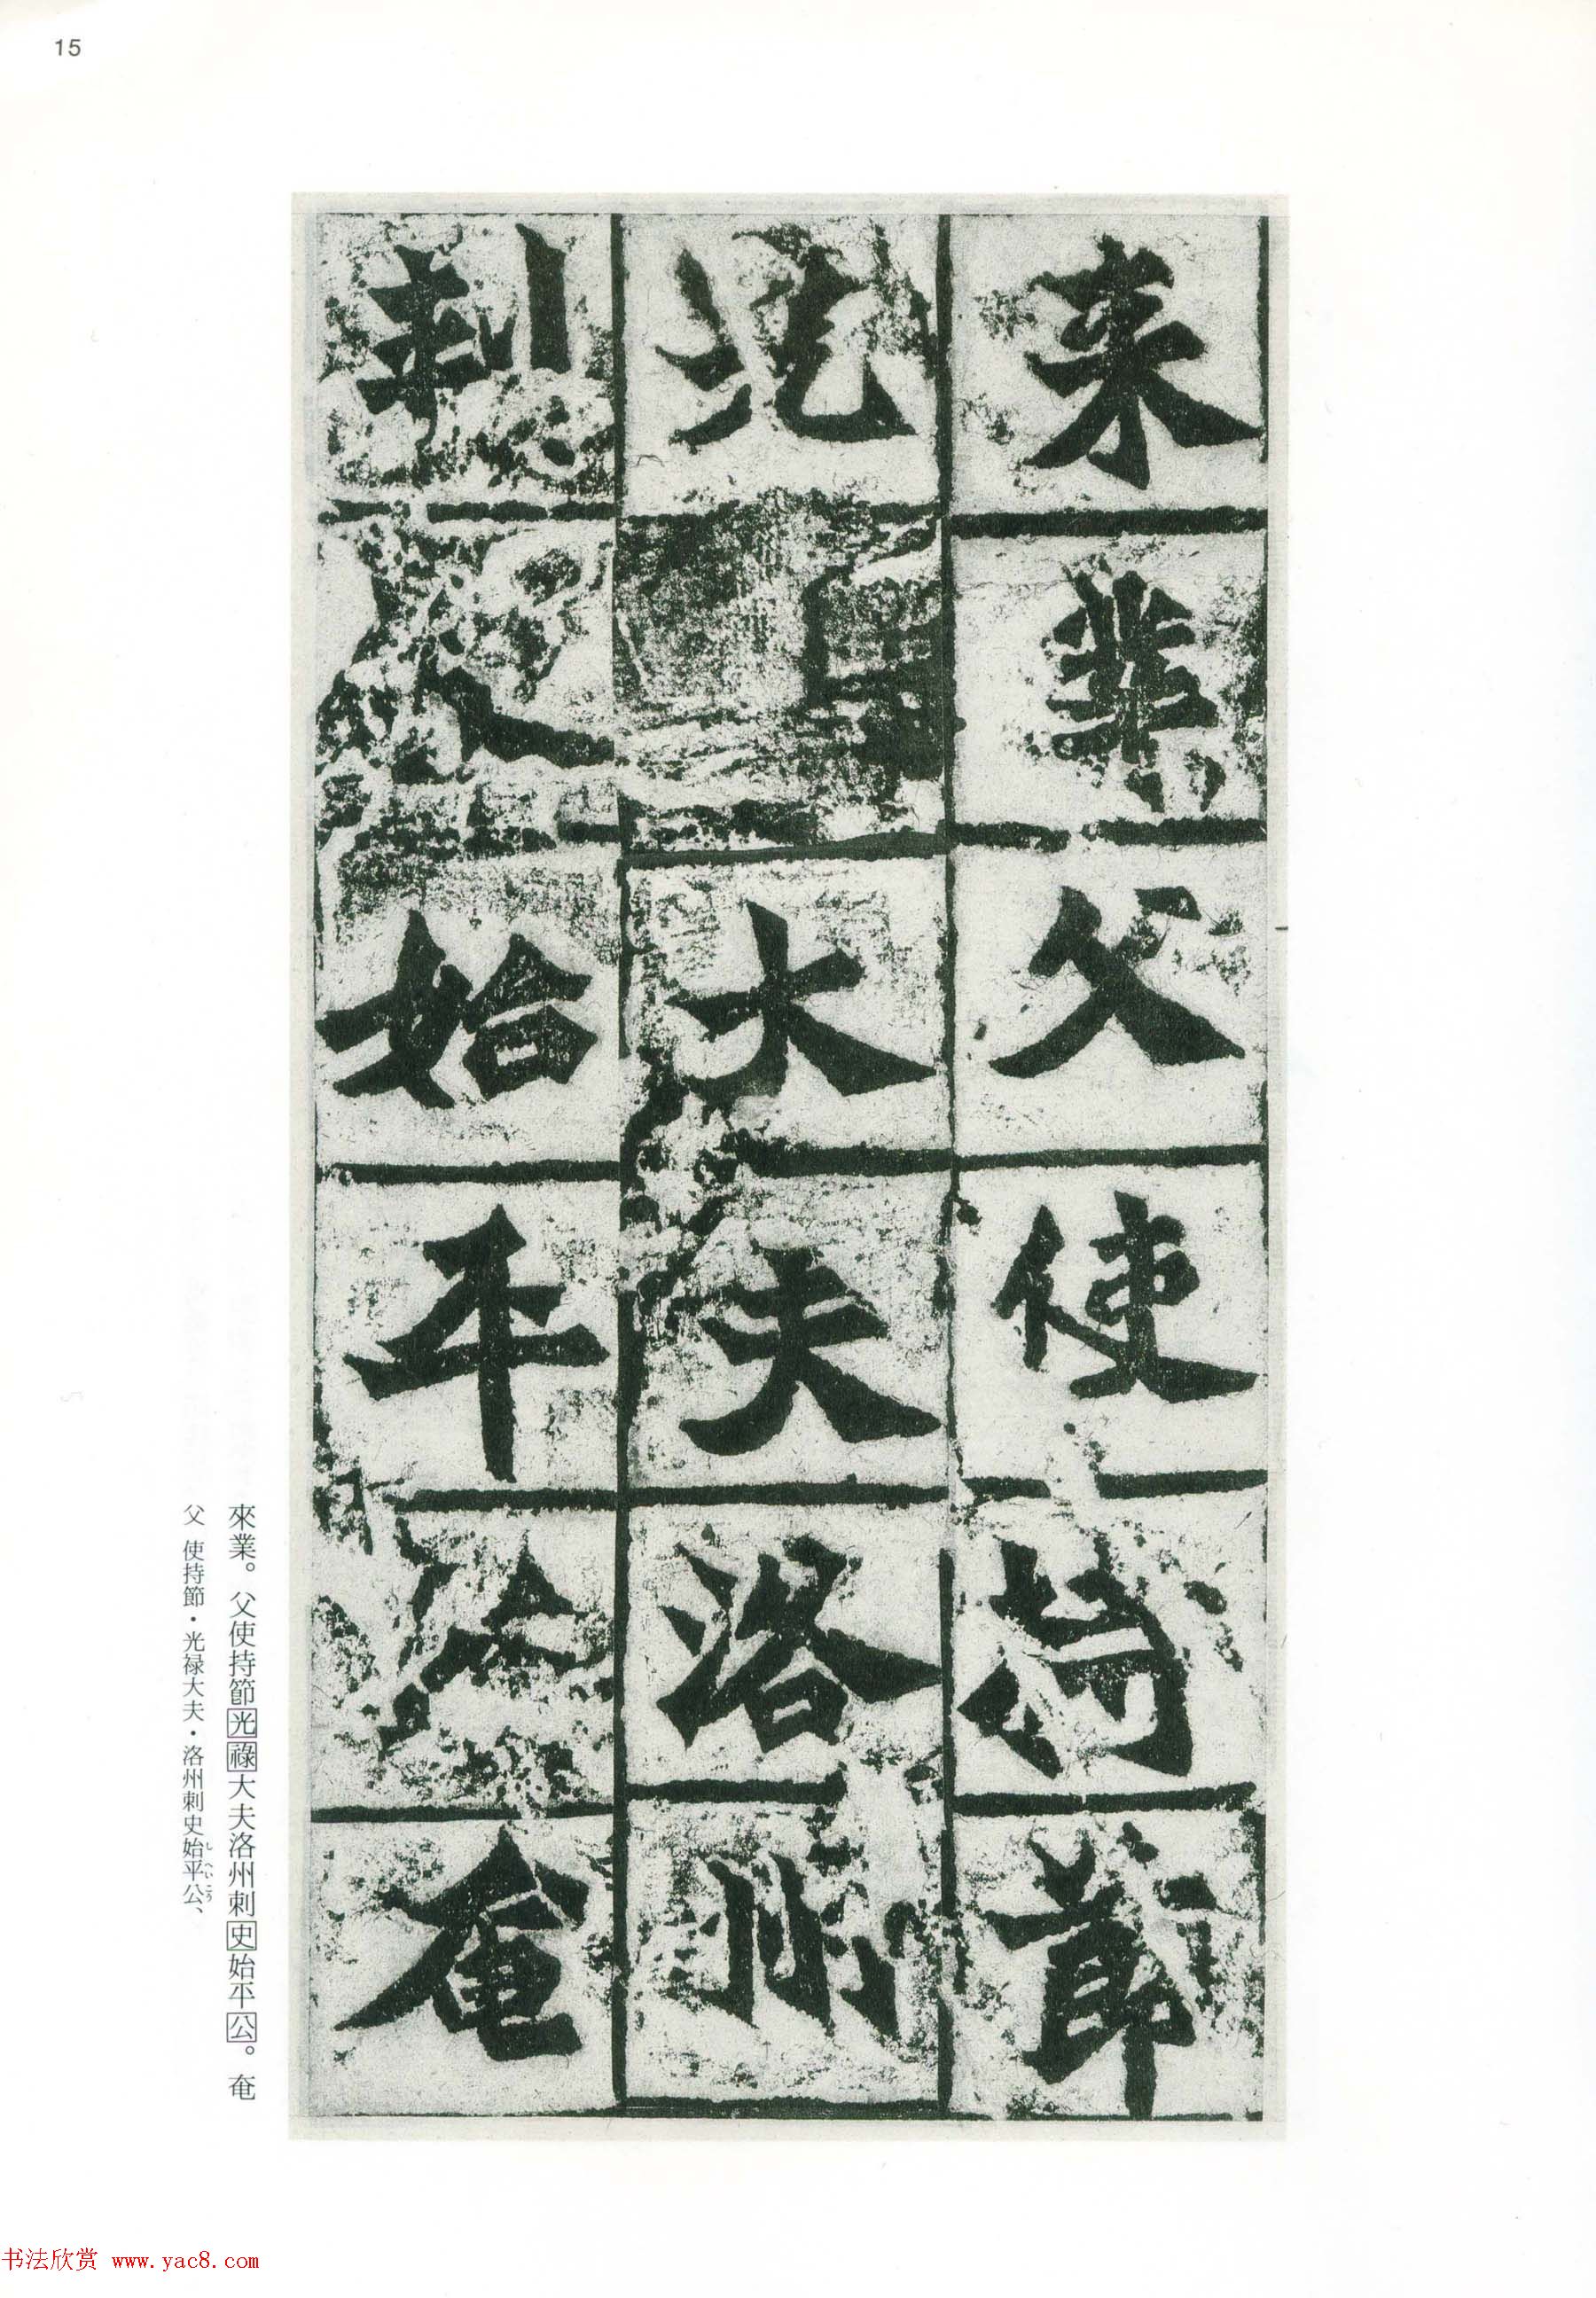 15
来業父使持節
光
大夫洛州
刺
始平公奄
來業。父使持節光祿大夫洛州刺史始平公。奄
父 使持節・光禄大夫・洛州刺史始平公、
しへいこう
书法欣赏 www.yac8.com